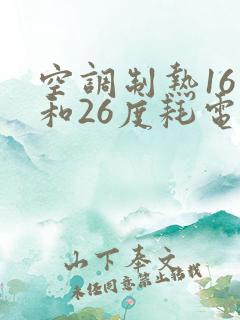 空調制熱16
和26度耗電
山下奉文
未經同意禁止轉載